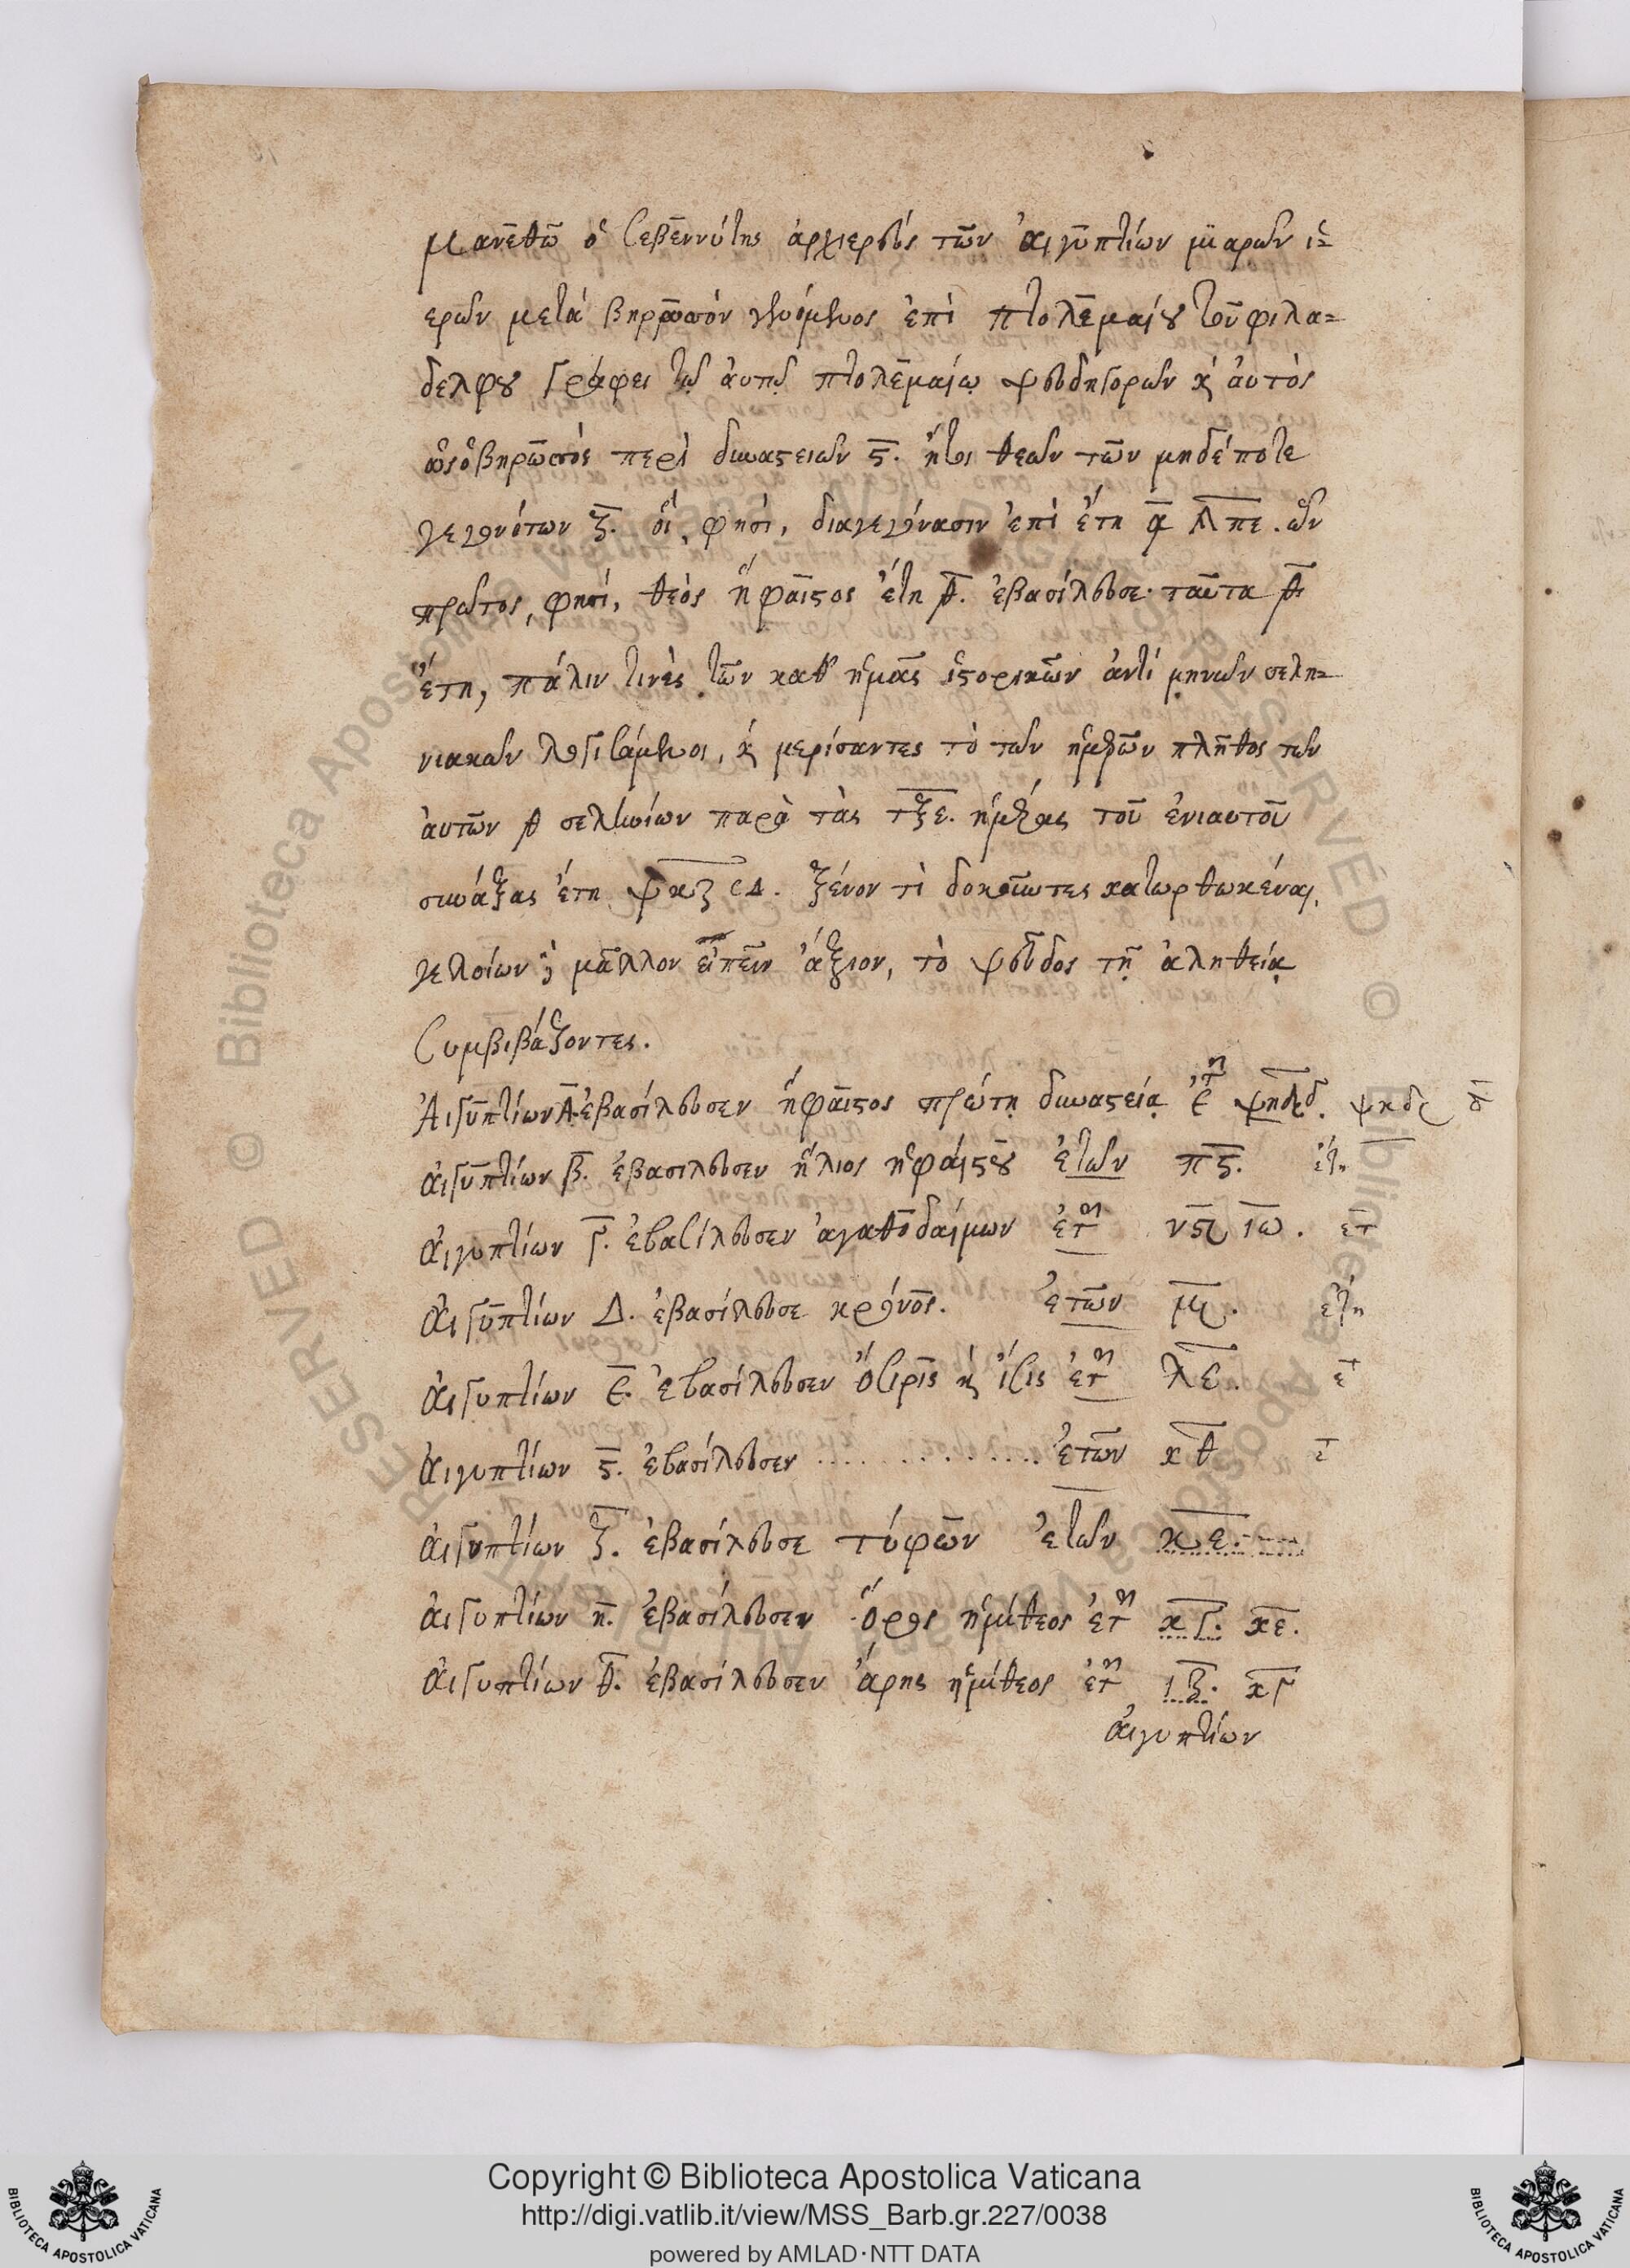 Μανεθῶ ὁ Σεβεννύτης ἀρχιερεὺς τῶν Αἰγυπτίων μιαρῶν ἱ=
ερῶν μετὰ Βηρωσσὸν γενόμενος ἐπὶ Πτολεμαίου τοῦ φιλα=
δέλφου γράφει τῷ αὐτῷ Πτολεμαίῳ ψευδηγορῶν κ̀ αὐτὸς
ὡς ὁ Βηρωσσὸς περὶ δυναστειῶν ϛ̅. ἤτοι θεῶν τῶν μηδέποτε
γεγονότων ζ̅. οἵ, φησὶ, διαγεγόνασιν ἐπὶ ἔτη α̅ Λ̅π̅ε. ὧν
πρῶτος, φησὶ, θεὸς ἥφαιστος ἔτη θ̅. ἐβασίλευσε· ταῦτα θ̅
ἔτη, πάλιν τινὲς τῶν καθ' ἡμᾶς ἱστορικῶν ἀντὶ μηνῶν σελη=
νιακῶν λογισάμενοι, κ̀ μερίσαντες τὸ τῶν ἡμερῶν πλῆθος τῶν
αὐτῶν θ σεληνίων παρὰ τὰς τ̅ξ̅ε̅. ἡμέρας τοῦ ἐνιαυτοῦ
συνάξας ἔτη ψ̅κ̅ζ ϲδ. ξένον τὶ δοκοῦντες κατωρθωκέναι,
γελοίων δὲ μᾶλλον εἰπεῖν ἄξιον, τὸ ψεῦδος τῇ ἀληθείᾳ
Συμβιβάζοντες.
Αἰγυπτίων Α. ἐβασίλευσεν ἥφαιστος πρώτη δυναστείᾳ ἔτη ψκδδ. ψκδ
αἰγυπτίων β̅. ἐβασίλευσεν ἥλιος ἡφαίστου ἐτῶν π̅ϛ̅. ἔτη
αἰγυπτίων γ̅. ἐβασίλευσεν ἀγαθοδαίμων ἔτη ν̅ϛ̅ ι̅ω. ετ
αἰγυπτίων Δ. ἐβασίλευσε κρόνος. ἐτῶν μ̅. ἔτη
αἰγυπτίων ε̅. ἐβασίλευσεν ὄσιρις κ̀ ἶσις ἔτη λ̅ε̅. ετ
αἰγυπτίων ϛ̅. ἐβασίλευσεν .............. ἐτῶν κ̅θ̅
αἰγυπτίων ζ̅. ἐβασίλευσε τύφων ἐτῶν κ̅ε̅.
αἰγυπτίων η̅. ἐβασίλευσεν ὅρος ἡμίθεος ἔτη κ̅γ̅. κ̅ε̅.
αἰγυπτίων θ̅. ἐβασίλευσεν ἄρης ἡμίθεος ἔτη ι̅ζ̅. κ̅γ̅
αἰγυπτίων
© Biblioteca Apostolica Vaticana
Copyright © Biblioteca Apostolica Vaticana
http://digi.vatlib.it/view/MSS_Barb.gr.227/0038
powered by AMLAD·NTT DATA
BIBLIOTECA APOSTOLICA VATICANA
BIBLIOTECA APOSTOLICA VATICANA